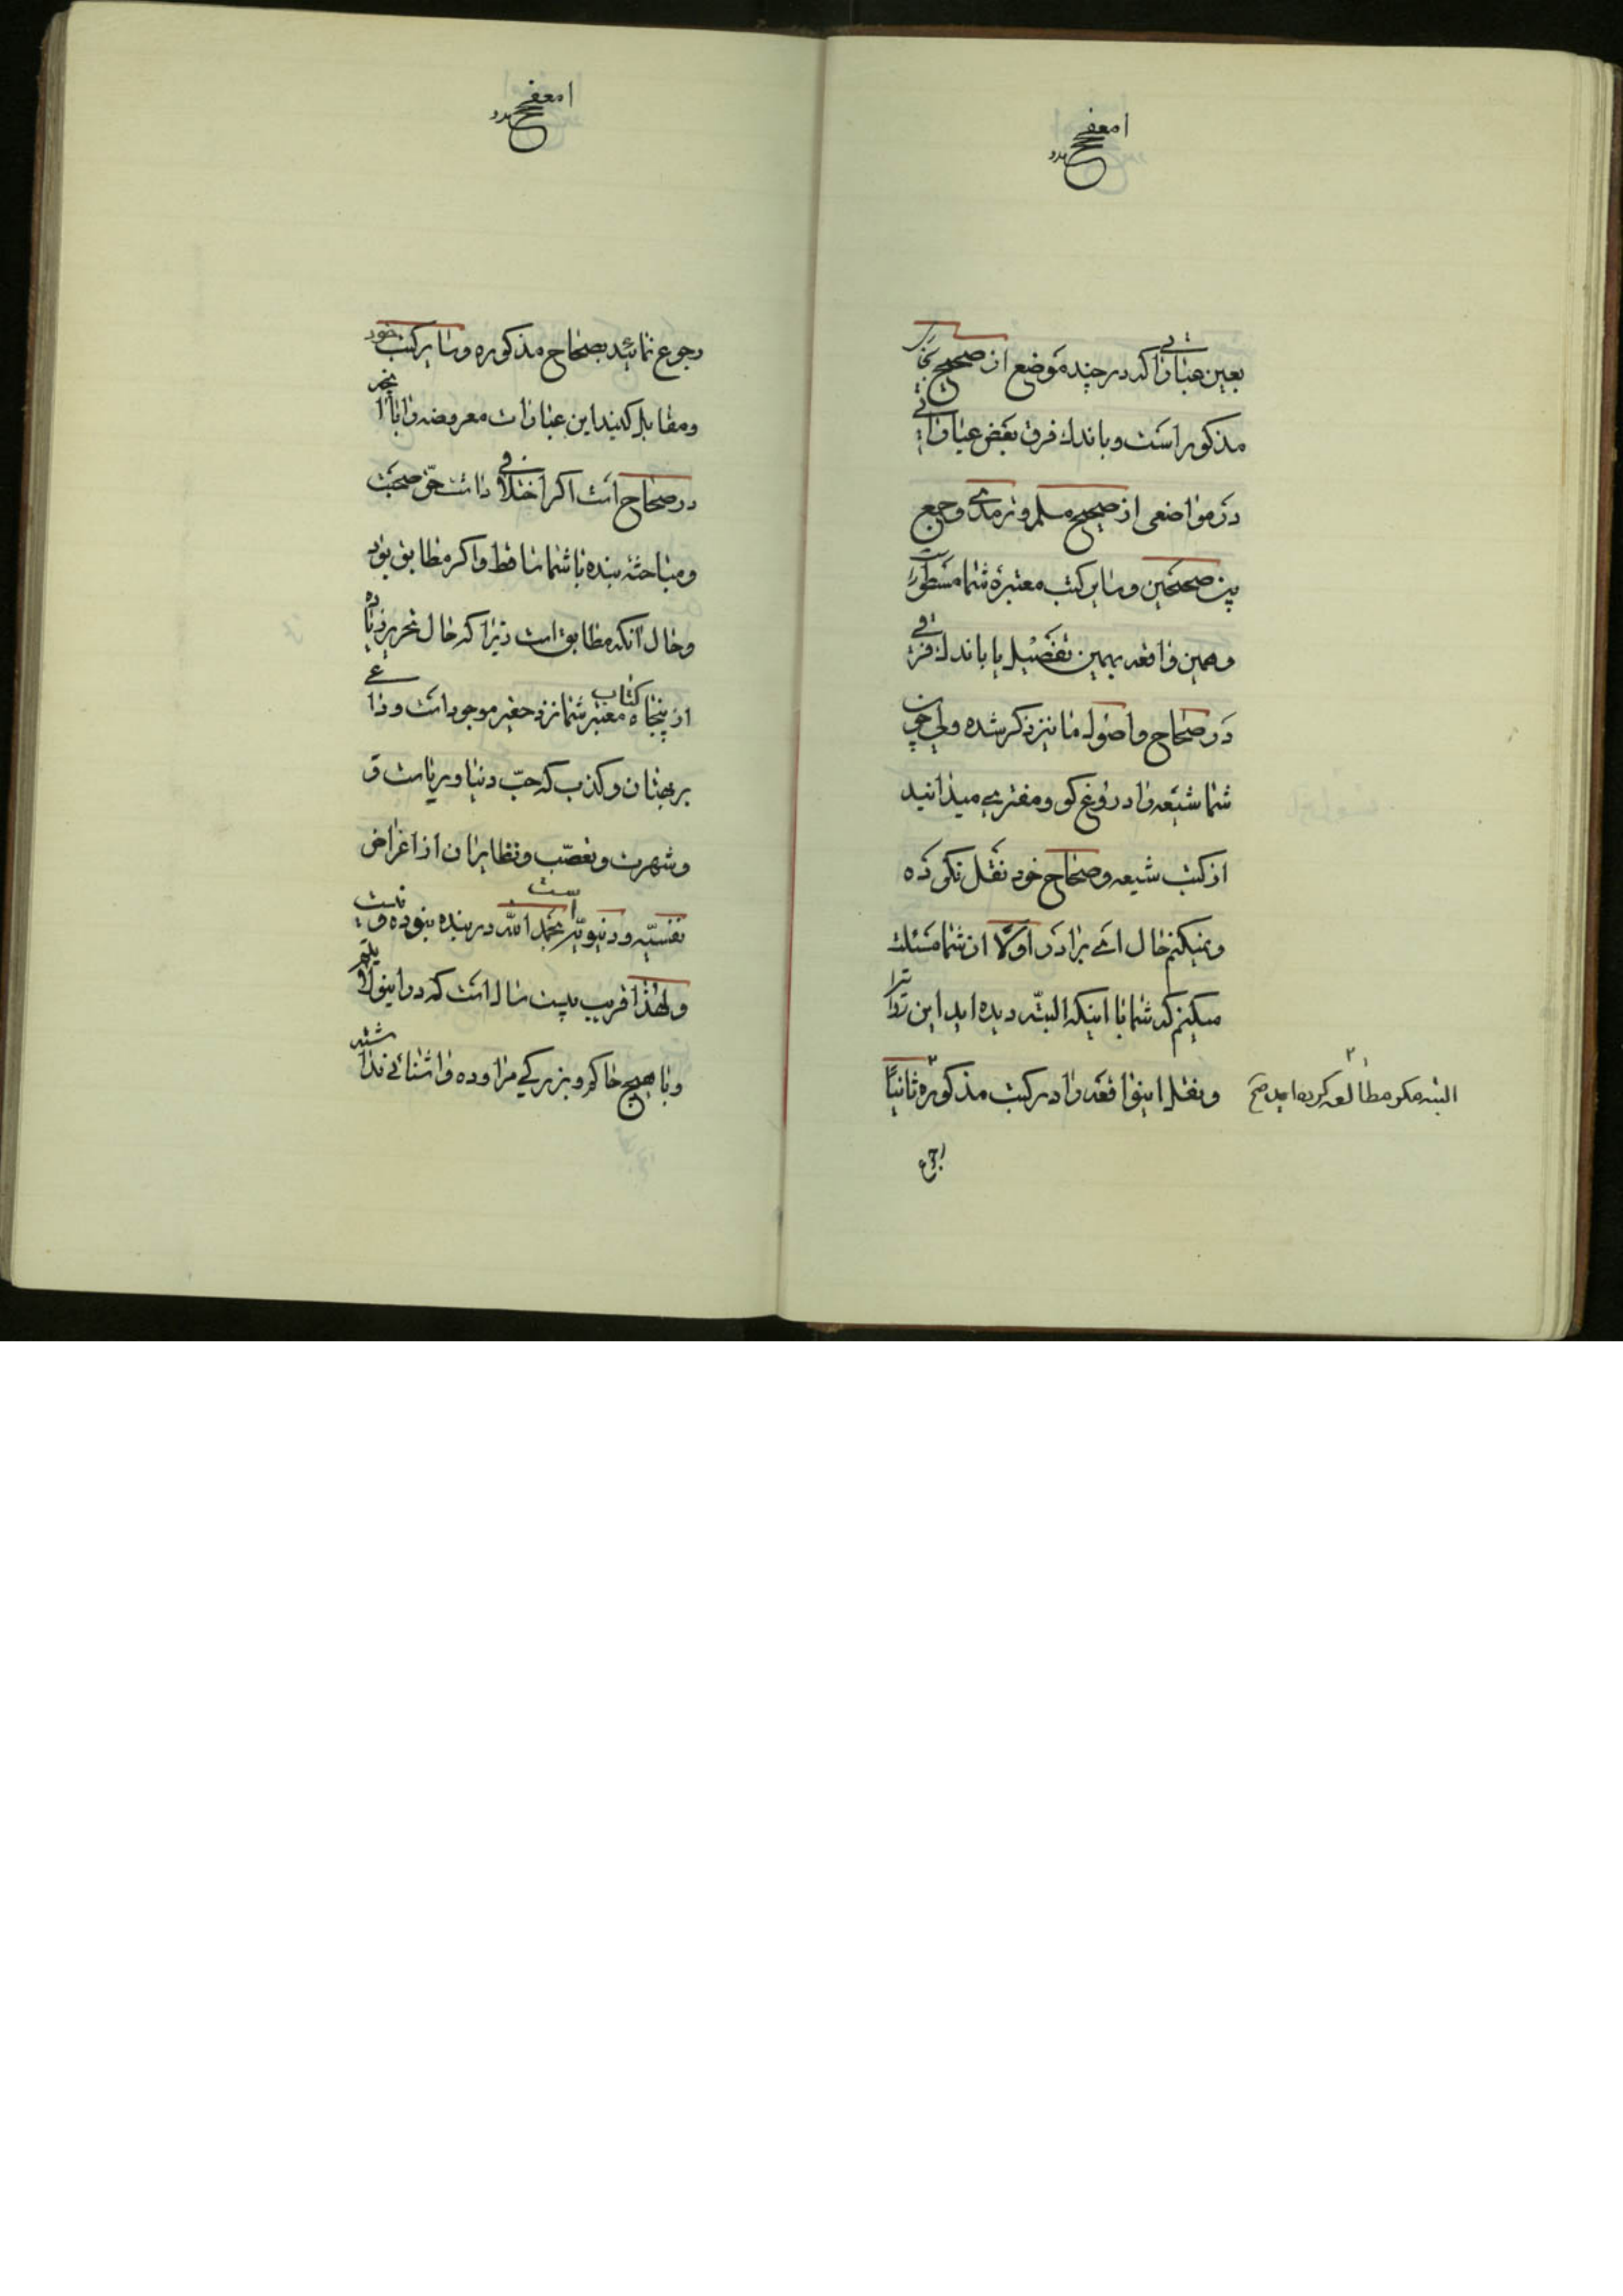 بعین عباراتی که در چند موضع از صحیح بخاری
مذکور است و باندک فرق بعض عباراتی
در مواضعی از صحیح مسلم و ترمذی و جمع
بین صحیحین و سایر کتب معتبرهٔ شما مسطور است
و همین واقعه بهمین تفصیل یا باندک فرقی
در صحاح و اصول ما نیز ذکر شده ولی چون
شما شیعه را دروغ گو و مفتری میدانید
از کتب شیعه و صحاح خود نقل نکرده
و نمیکنم حال ای برادر اولاً از شما مسئلت
میکنم که شما با اینکه البته دیده اید این تواتر را
و نقل اینواقعه را در کتب مذکوره ثانیاً
البته مکرر مطالعه کرده اید صح
رجوع
رجوع نمائید بصحاح مذکوره و سایر کتب خود
و مقابله کنید این عبارات معروضه را با آنچه
در صحاح است اگر اختلافی داشت حق صحبت
و مباحثهٔ بنده با شما ساقط و اگر مطابق بود
و حال آنکه مطابق است زیرا که حال تحریر زیاده
از پنجاه کتاب معتبر شما نزد حقیر موجود است و داعی
بر بهتان و کذب که حبّ دنیا و ریاست و
و شهرت و تعصّب و نظایر آن از اغراض
نفسیّه و دنیویّه است بحمد الله در بنده نبوده و نیست
و لهذا قریب بیست سال است که در اینولایتم
و با هیچ حاکم و بزرگی مراوده و آشنائی نداشته